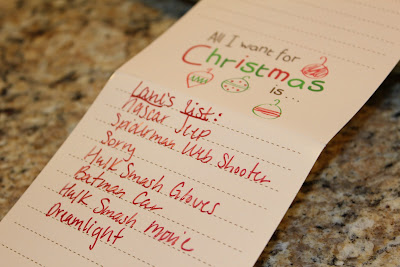 All I want for
Christmas
is...
list:
Nascar Jeep
Spiderman Web Shooter
Sorry
Hulk Smash Gloves
Batman Car
Hulk Smash Movie
Dreamlight